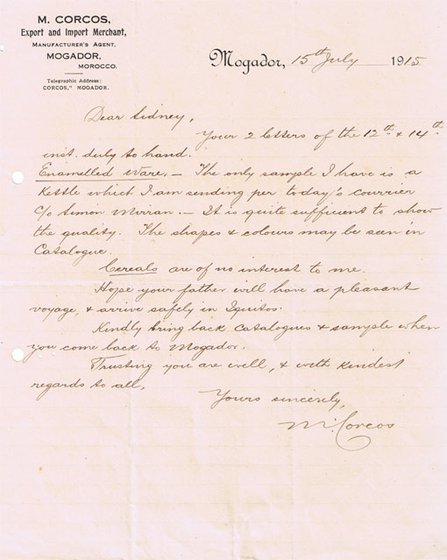 M. CORCOS,
Export and Import Merchant,
MANUFACTURER'S AGENT,
MOGADOR,
MOROCCO.
Telegraphic Address:
CORCOS," MOGADOR.
Mogador, 15th July 1915
Dear Sidney,
Your 2 letters of the 12th & 14th
inst. duly to hand.
Enamelled Ware. – The only sample I have is a
Kettle which I am sending per today's courrier
c/o Simon – It is quite sufficient to show
the quality. The shapes & colours may be seen in
Catalogue.
Cereals are of no interest to me.
Hope your father will have a pleasant
voyage, & arrive safely in Iquitos.
Kindly bring back Catalogues & sample when
you come back to Mogador.
Trusting you are well, & with kindest
regards to all,
Yours sincerely,
M. Corcos